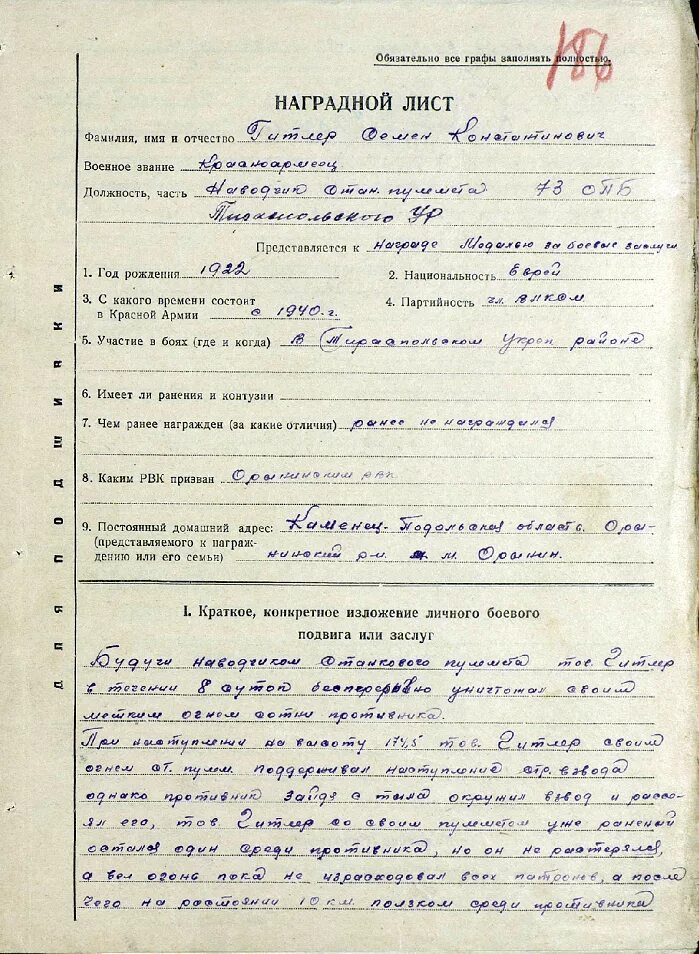 186
Обязательно все графы заполнять полностью.
НАГРАДНОЙ ЛИСТ
Фамилия, имя и отчество Гитлер Семен Константинович
Военное звание Красноармеец
Должность, часть Наводчик Стан. пулемета 73 ОПБ
Тираспольского УР
Представляется к награде Медалью за боевые заслуги
1. Год рождения 1922 2. Национальность Еврей
3. С какого времени состоит
в Красной Армии с 1940 г. 4. Партийность чл. ВЛКСМ
5. Участие в боях (где и когда) В Тираспольском Укреп районе
6. Имеет ли ранения и контузии
7. Чем ранее награжден (за какие отличия) ранее не награждался
8. Каким РВК призван Орынинским рвк
9. Постоянный домашний адрес: Каменец-Подольская область. Оры-
(представляемого к награж-
дению или его семьи) нинский р-н. м. Орынин.
для подшивки
I. Краткое, конкретное изложение личного боевого
подвига или заслуг
Будучи наводчиком Станкового пулемета тов. Гитлер
в течении 8 суток бесперерывно уничтожал своим
метким огнем сотни противника.
При наступлении на высоту 174,5 тов. Гитлер своим
огнем ст. пулем. поддерживал наступление стр. взвода
однако противник зайдя с тыла окружил взвод и рассе-
ял его, тов. Гитлер со своим пулеметом уже раненый
остался один среди противника, но он не растерялся,
а вел огонь пока не израсходовал всех патронов, а после
чего на расстоянии 10 км. ползком среди противника